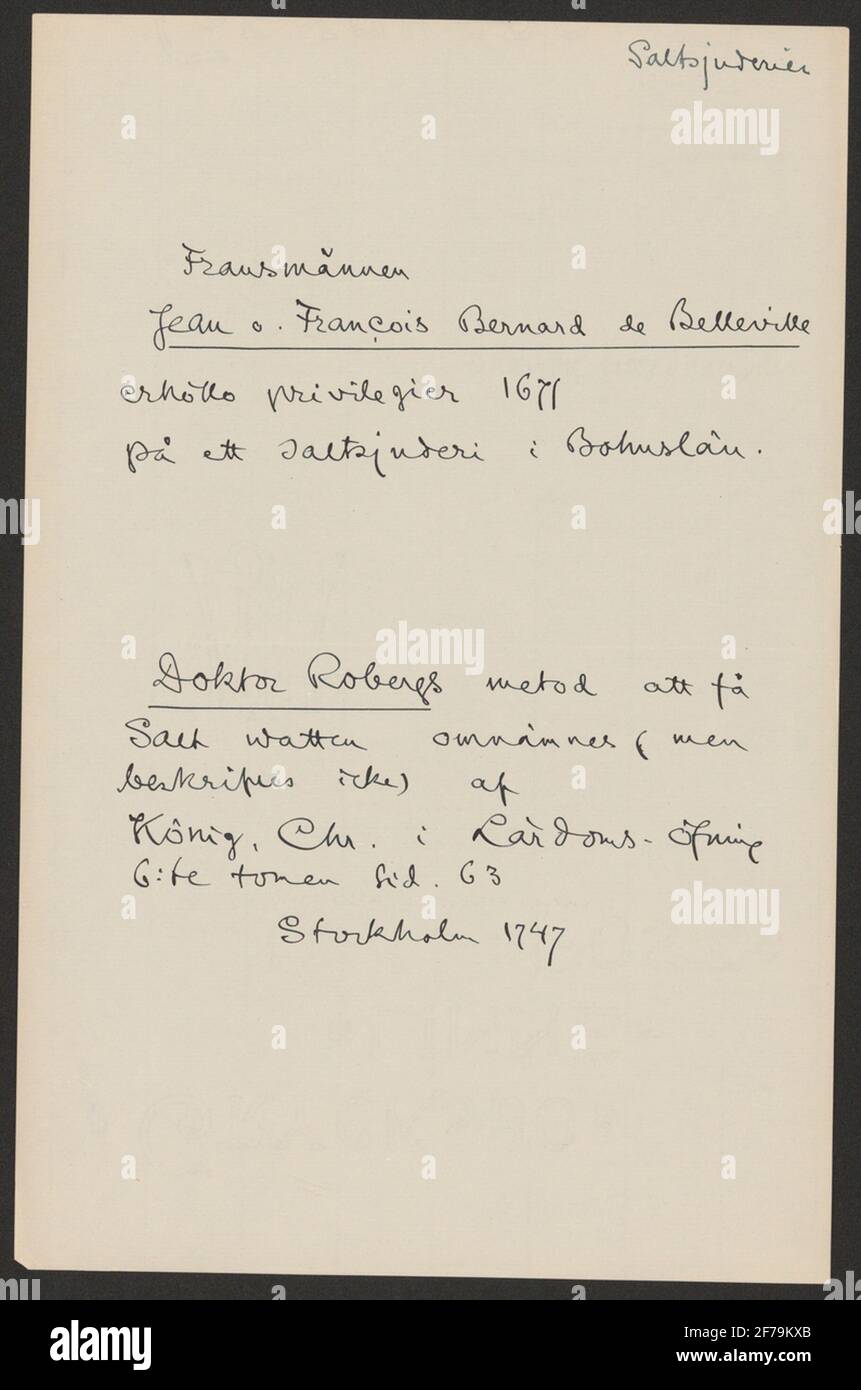 Saltsjuderier
Fransmännen
Jean o. François Bernard de Belleville
erhöllo privilegier 1671
på ett Saltsjuderi i Bohuslän.
Doktor Robergs metod att få
Salt watten omnämnes (men
beskrifves icke) af
König, Chr. i Lärdoms-öfning
6:te tomen sid. 63
Stockholm 1747
a alamy
alamy
Image ID: 2F79KXB
www.alamy.com